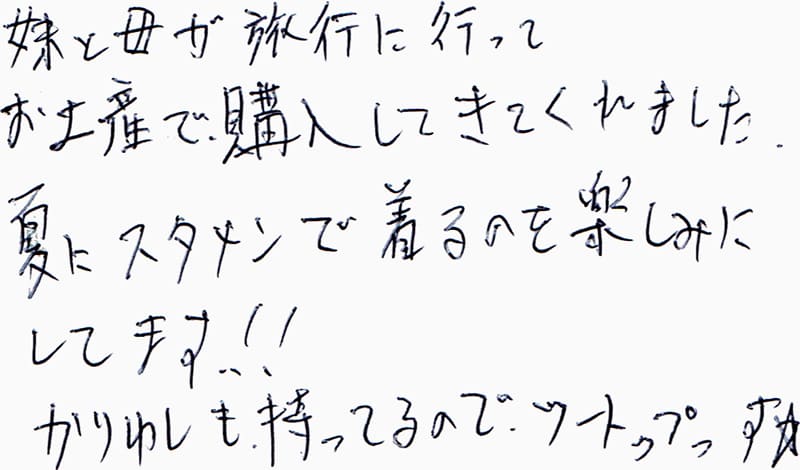 妹と母が旅行に行って
お土産で購入してきてくれました.
夏にスタメンで着るのを楽しみに
してます!!
かりゆしも持ってるのでツートップっす☆